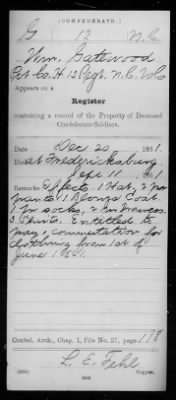 (CONFEDERATE.)
G 13 N.C.
Wm. Gatewood
Pvt Co. H. 13 Regt. N.C. Vols
Appears on a
Register
containing a record of the Property of Deceased
Confederate Soldiers.
Date Dec 20 1861.
at Fredericksburg
Sept 11 1861
Remarks: Effects. 1 Hat, 2 pr
pants. 1 Blouze Coat.
1 pr socks, 2 pr Drawers.
3 Shirts. Entitled to
pay, commutation for
clothing from 1st of
June 1861.
Confed. Arch., Chap. 1, File No. 27, page 178
L. E. Fehl
Copyist.